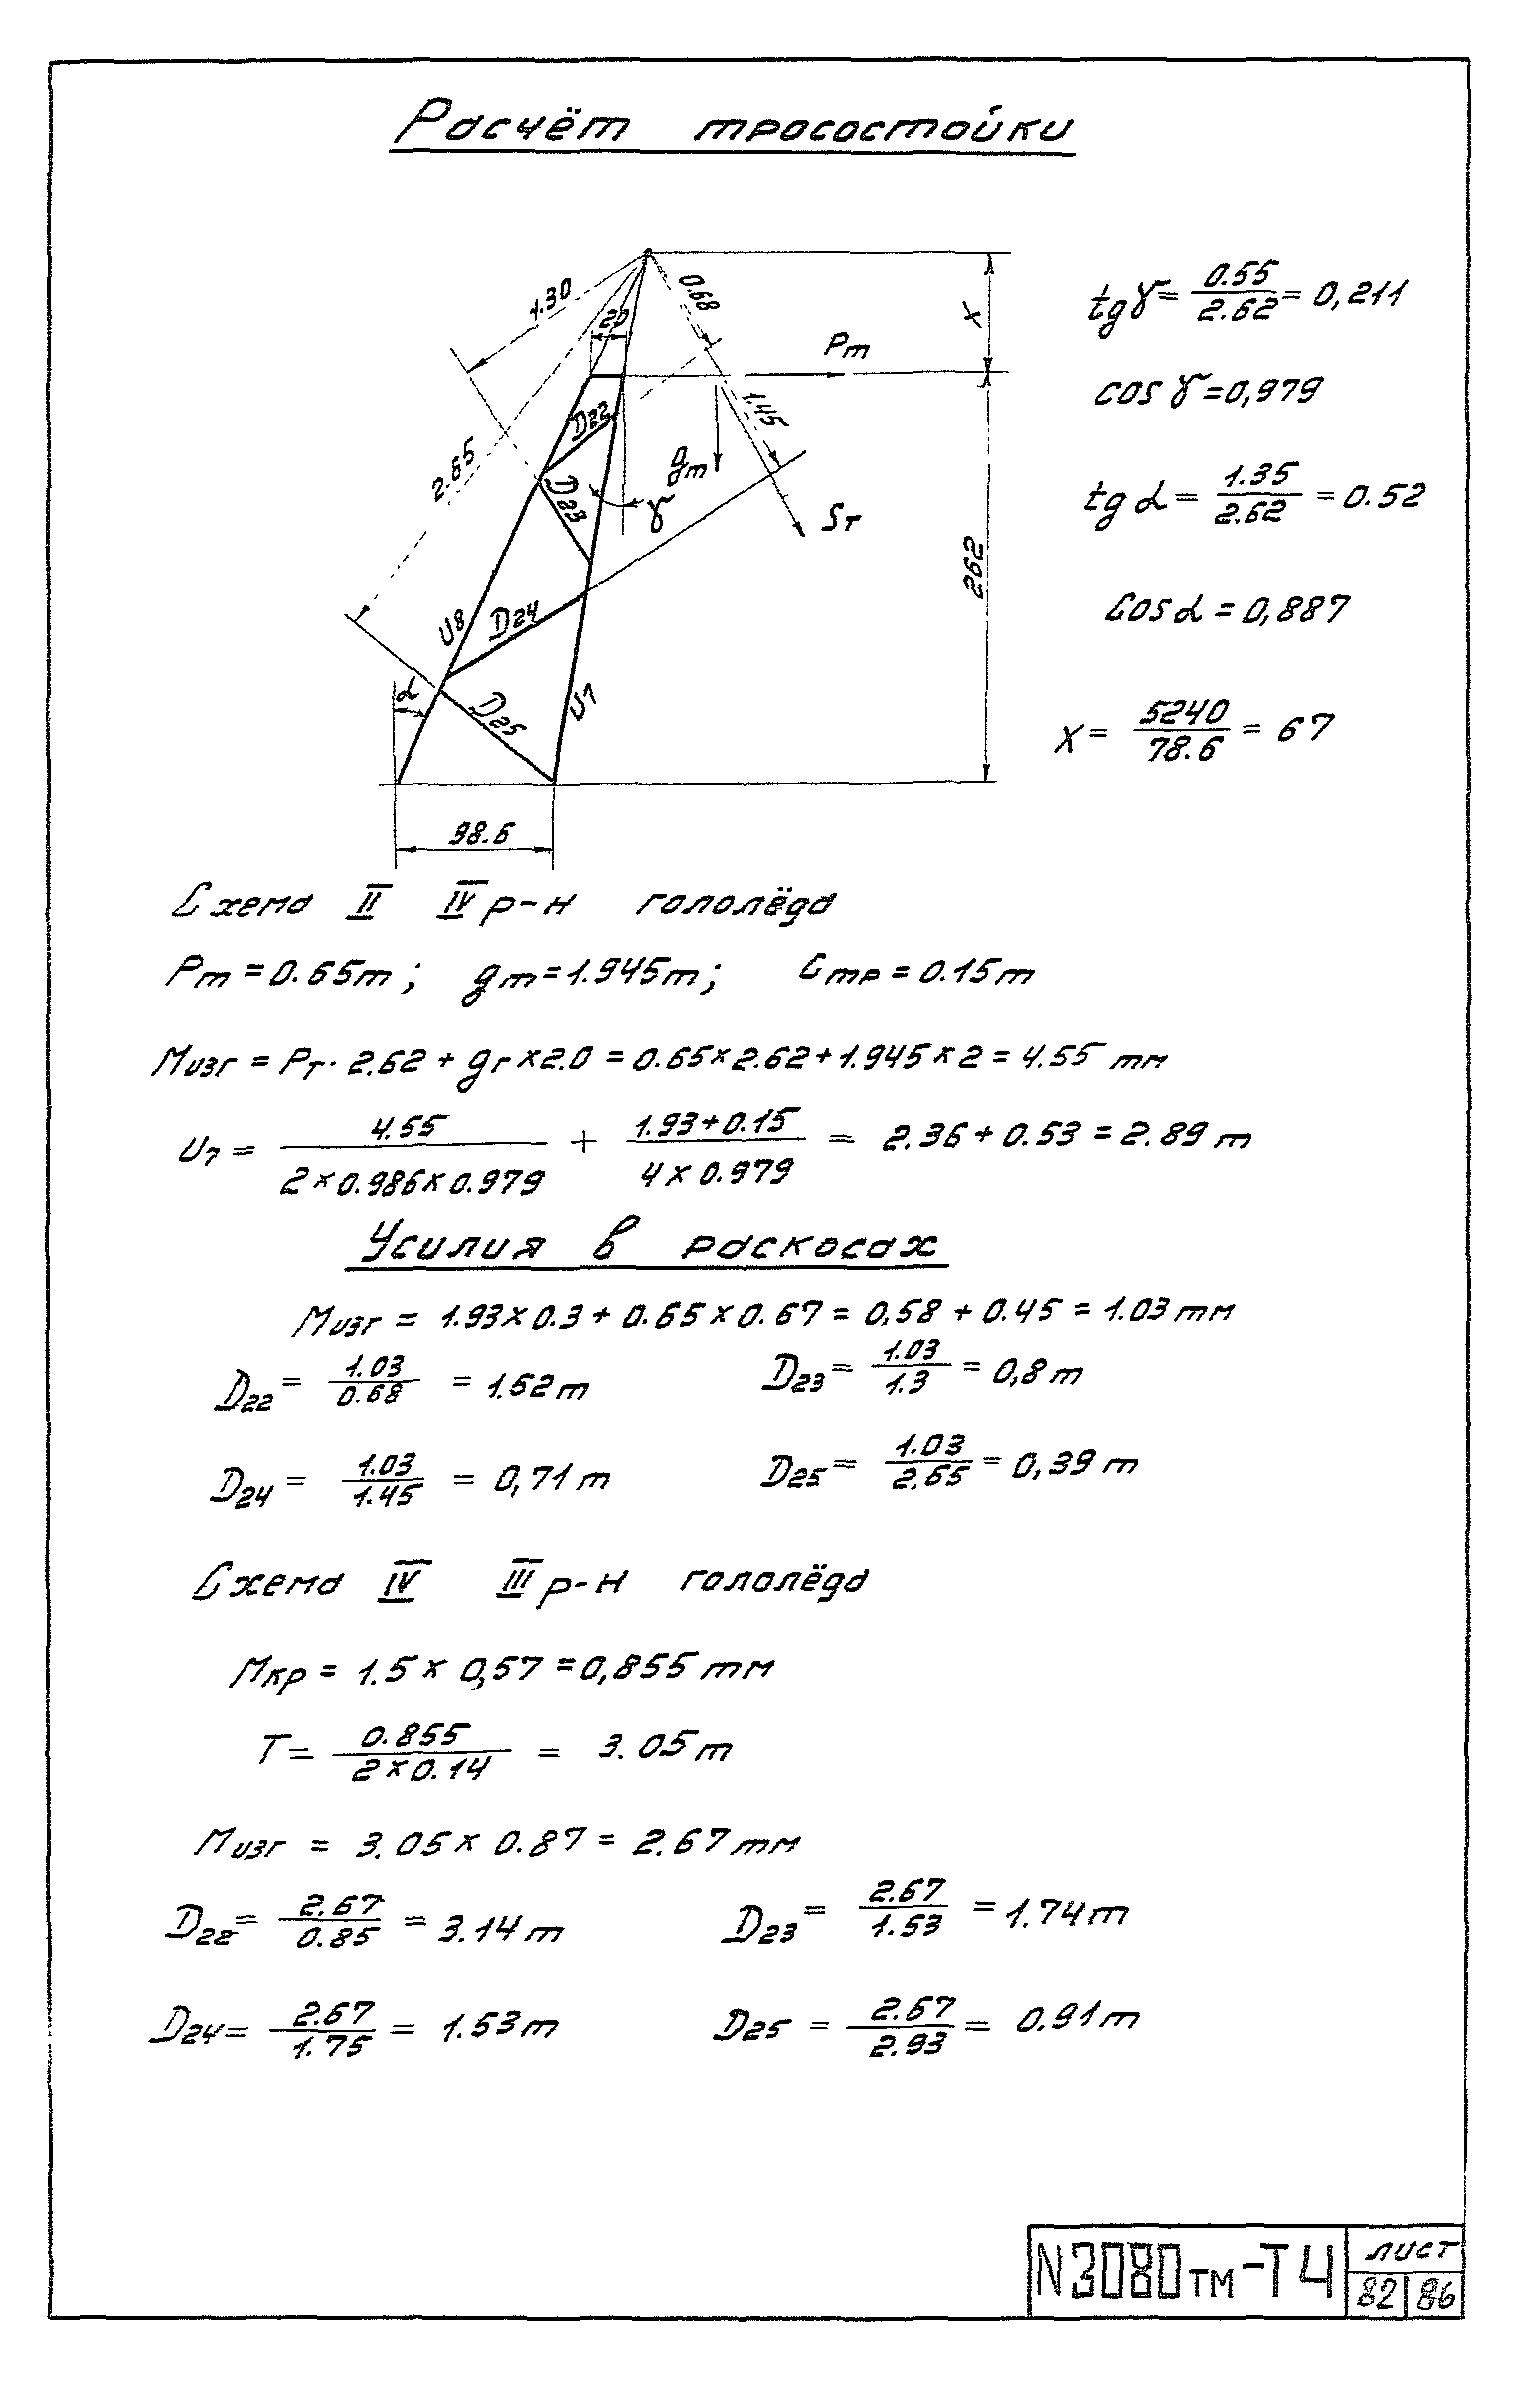 Расчёт тросостойки
1.30
0.68
20
X
Pт
tg γ = 0.55 / 2.62 = 0,211
cos γ = 0,979
1.45
D22
2.65
gт
D23
γ
Sт
tg α = 1.35 / 2.62 = 0.52
262
U8
D24
Cos α = 0,887
α
D25
U7
X = 5240 / 78.6 = 67
98.6
Схема II IV р-н гололёда
Pт = 0.65т; gт = 1.945т; Gтр = 0.15т
Mизг = Pт · 2.62 + gг × 2.0 = 0.65 × 2.62 + 1.945 × 2 = 4.55 тм
U7 = 4.55 / 2 × 0.986 × 0.979 + 1.93 + 0.15 / 4 × 0.979 = 2.36 + 0.53 = 2.89 т
Усилия в раскосах
Mизг = 1.93 × 0.3 + 0.65 × 0.67 = 0,58 + 0.45 = 1.03 тм
D22 = 1.03 / 0.68 = 1.52 т D23 = 1.03 / 1.3 = 0,8 т
D24 = 1.03 / 1.45 = 0,71 т D25 = 1.03 / 2.65 = 0,39 т
Схема IV III р-н гололёда
Mкр = 1.5 × 0,57 = 0,855 тм
T = 0.855 / 2 × 0.14 = 3.05 т
Mизг = 3.05 × 0.87 = 2.67 тм
D22 = 2.67 / 0.85 = 3.14 т D23 = 2.67 / 1.53 = 1.74 т
D24 = 2.67 / 1.75 = 1.53 т D25 = 2.67 / 2.93 = 0.91 т
N3080тм-Т4 лист
82 86